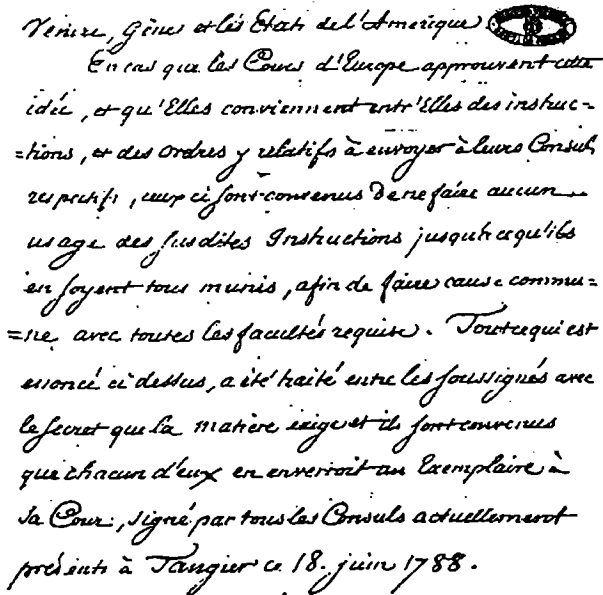 Venise, Gênes et les Etats de l'Amerique
En cas que les Cours d'Europe approuvent cette
idée, et qu'Elles conviennent entr'Elles des instruc-
=tions, et des Ordres y relatifs à envoyer à leurs Consuls
respectifs, ceux ci sont convenus de ne faire aucun
usage des susdites Instructions jusqu'à ce qu'ils
en soyent tous munis, afin de faire cause commu=
=ne avec toutes les facultés requise. Tout ce qui est
enoncé ci dessus, a été traité entre les soussignés avec
le secret que la matière exige et ils sont convenus
que chacun d'eux en enverroit un Exemplaire à
sa Cour, signé par tous les Consuls actuellement
présents à Tangier ce 18. juin 1788.